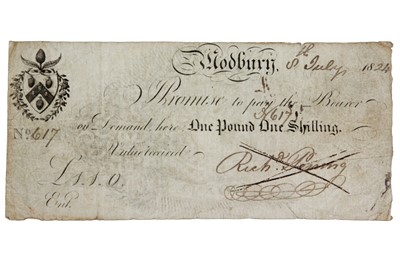 Modbury, 8th July, 1824
I Promise to pay the Bearer
No 617 on Demand, here One Pound One Shilling.
617
Value received
£1.1.0. Richd. Perring
Ent.